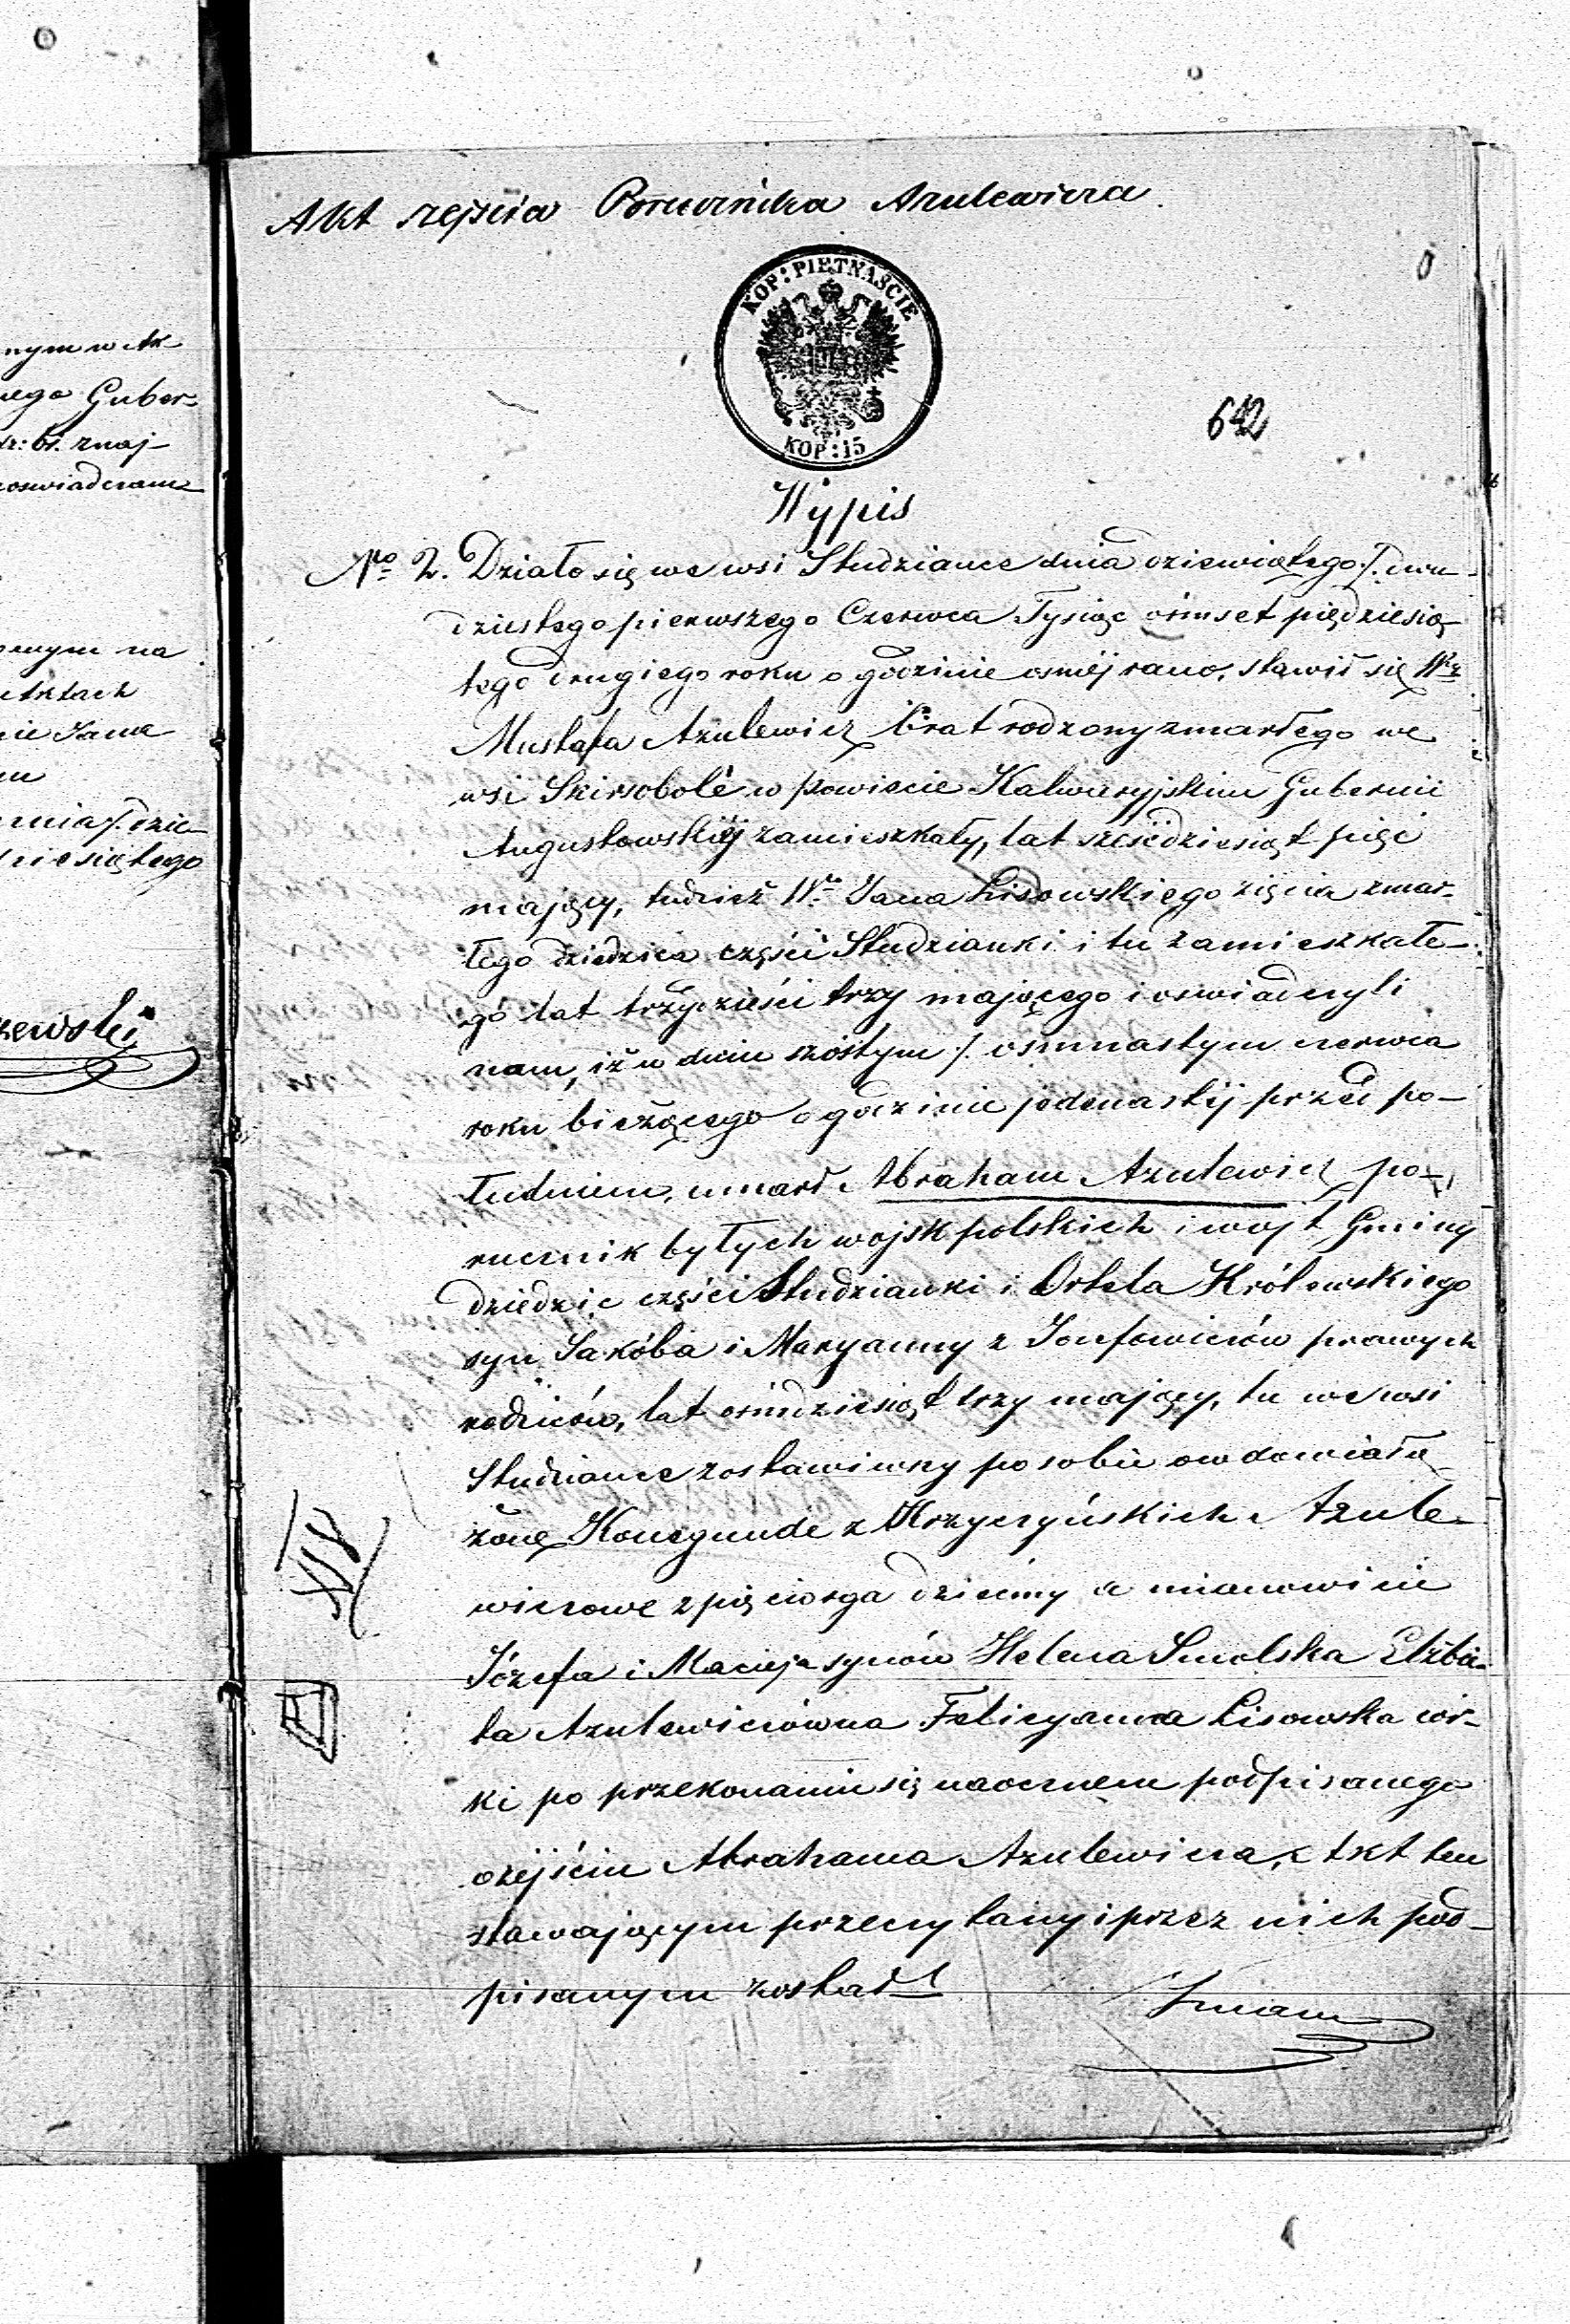 nym w Ak
nego Guber-
dz: bs. znaj-
oswiadczam
omym na
Aktach
nie same
ernia /. dzie-
dziesiątego
zewski
Akt zejścia Porucznika Azulewicza.
KOP: PIĘTNAŚCIE
KOP: 15
642
Wypis
No 2. Działo się we wsi Studziance dnia dziewiątego /. dwu-
dziestego pierwszego Czerwca Tysiąc ośmset pięćdziesią-
tego drugiego roku o godzinie osméj rano, stawił się Wy
Mustafa Azulewicz brat rodzony zmarłego we
wsi Skirsobolé w powiecie Kalwaryjskim Gubernii
Augustowskiéj zamieszkały, lat sześćdziesiąt pięć
mający, tudzież Wo Jana Lisowskiego zięcia zmar-
łego dziedzica części Studzianki i tu zamieszkałe-
go lat trzydzieści trzy mającego i oswiadczyli
nam, iż w dniu szóstym /. osmnastym czerwca
roku bieżącego o godzinie jedenastéj przed po-
łudniem, umarł Abraham Azulewicz po-
rucznik byłych wojsk polskich i wojt Gminy
dziedzic części Studzianki i Ortela Królewskiego
syn Jakóba i Maryanny z Józefowiczów prawych
rodziców, lat ośmdziesiąt trzy mający, tu we wsi
Studziance zostawiwszy po sobie owdowiałą
żonę Konegunde z Krzyczyńskich Azule-
wiczowe z pięciorga dziećmy a mianowicie
Józefa i Macieja synów Helena Smolska Elżbie-
ta Azulewiczówna Felicyanna Lisowska cór-
ki po przekonaniu się naocznem podpisanego
o zejściu Abrahama Azulewicza, Akt ten
stawającym przeczytany i przez nich pod-
pisanym został
Imam